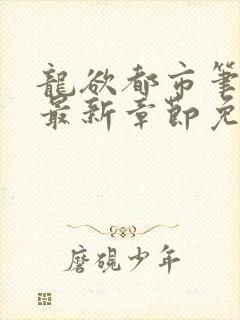 龍欲都市筆
最新章節免
磨硯少年